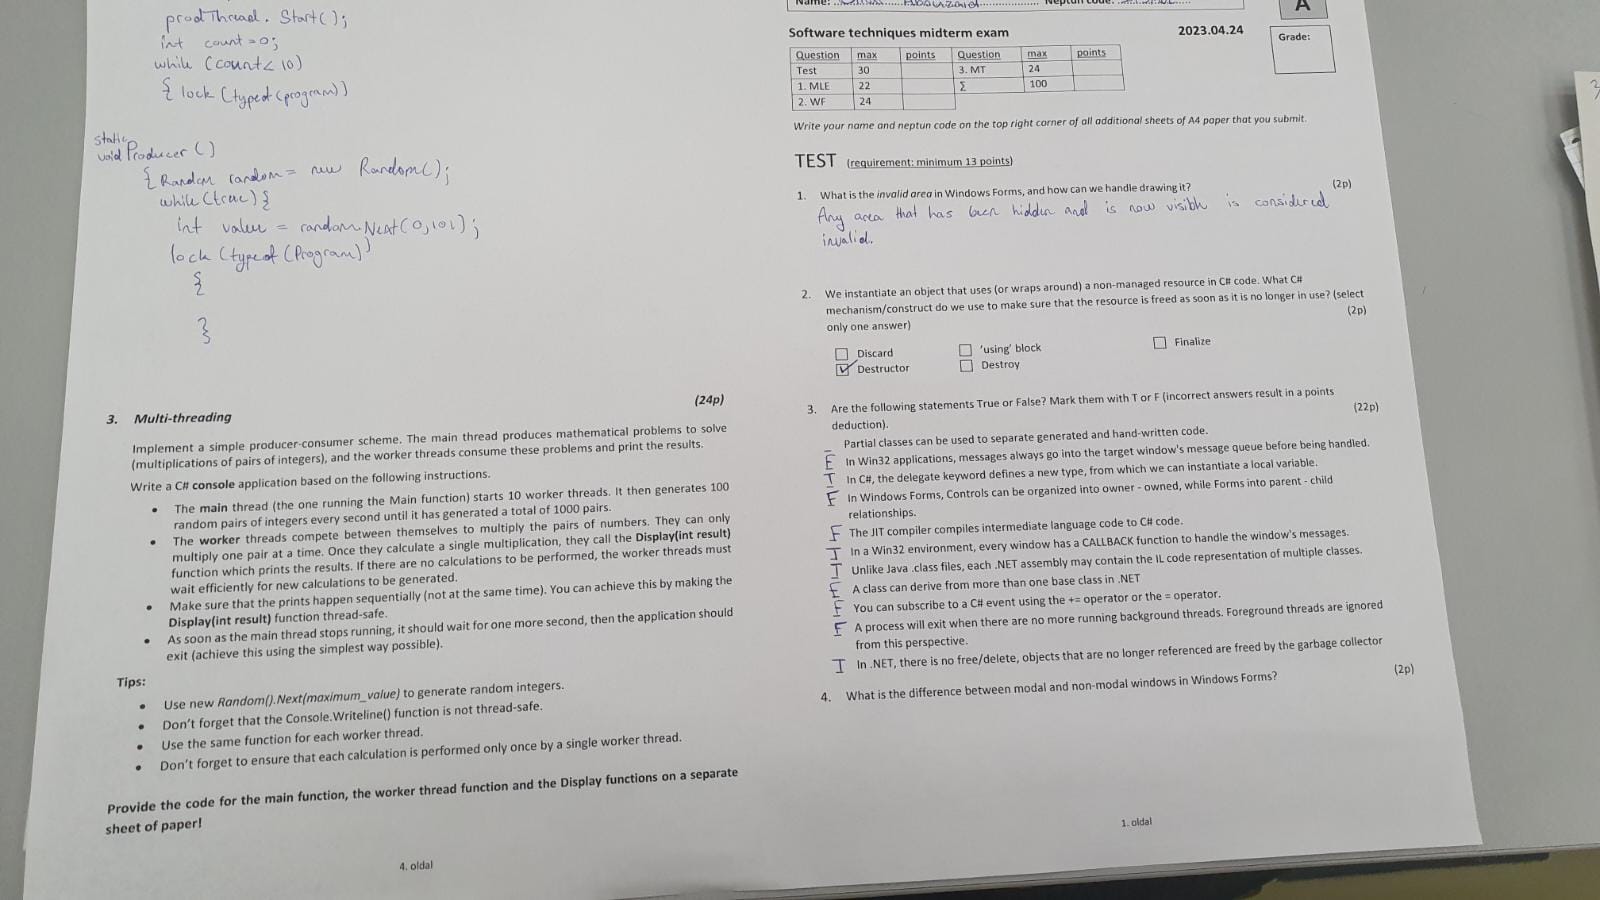 prodThread. Start();
int count=0;
while (count< 10)
{ lock (typeof (program))
static
void Producer ()
{ Random random = new Random();
while (true) {
int value = random.Next(0,101);
lock (typeof (Program))
{
}
3. Multi-threading (24p)
Implement a simple producer-consumer scheme. The main thread produces mathematical problems to solve
(multiplications of pairs of integers), and the worker threads consume these problems and print the results.
Write a C# console application based on the following instructions.
• The main thread (the one running the Main function) starts 10 worker threads. It then generates 100
random pairs of integers every second until it has generated a total of 1000 pairs.
• The worker threads compete between themselves to multiply the pairs of numbers. They can only
multiply one pair at a time. Once they calculate a single multiplication, they call the Display(int result)
function which prints the results. If there are no calculations to be performed, the worker threads must
wait efficiently for new calculations to be generated.
• Make sure that the prints happen sequentially (not at the same time). You can achieve this by making the
Display(int result) function thread-safe.
• As soon as the main thread stops running, it should wait for one more second, then the application should
exit (achieve this using the simplest way possible).
Tips:
• Use new Random().Next(maximum_value) to generate random integers.
• Don't forget that the Console.Writeline() function is not thread-safe.
• Use the same function for each worker thread.
• Don't forget to ensure that each calculation is performed only once by a single worker thread.
Provide the code for the main function, the worker thread function and the Display functions on a separate
sheet of paper!
4. oldal
Name: Neptun code:
A
Software techniques midterm exam 2023.04.24
Grade:
Question max points Question max points
Test 30 3. MT 24
1. MLE 22 Σ 100
2. WF 24
Write your name and neptun code on the top right corner of all additional sheets of A4 paper that you submit.
TEST (requirement: minimum 13 points)
1. What is the invalid area in Windows Forms, and how can we handle drawing it? (2p)
Any area that has been hidden and is now visible is considered
invalid.
2. We instantiate an object that uses (or wraps around) a non-managed resource in C# code. What C#
mechanism/construct do we use to make sure that the resource is freed as soon as it is no longer in use? (select
only one answer) (2p)
Discard 'using' block Finalize
Destructor Destroy
3. Are the following statements True or False? Mark them with T or F (incorrect answers result in a points
deduction). (22p)
_ Partial classes can be used to separate generated and hand-written code.
F In Win32 applications, messages always go into the target window's message queue before being handled.
T In C#, the delegate keyword defines a new type, from which we can instantiate a local variable.
F In Windows Forms, Controls can be organized into owner - owned, while Forms into parent - child
relationships.
F The JIT compiler compiles intermediate language code to C# code.
T In a Win32 environment, every window has a CALLBACK function to handle the window's messages.
T Unlike Java .class files, each .NET assembly may contain the IL code representation of multiple classes.
F A class can derive from more than one base class in .NET
F You can subscribe to a C# event using the += operator or the = operator.
F A process will exit when there are no more running background threads. Foreground threads are ignored
from this perspective.
T In .NET, there is no free/delete, objects that are no longer referenced are freed by the garbage collector
4. What is the difference between modal and non-modal windows in Windows Forms? (2p)
1. oldal